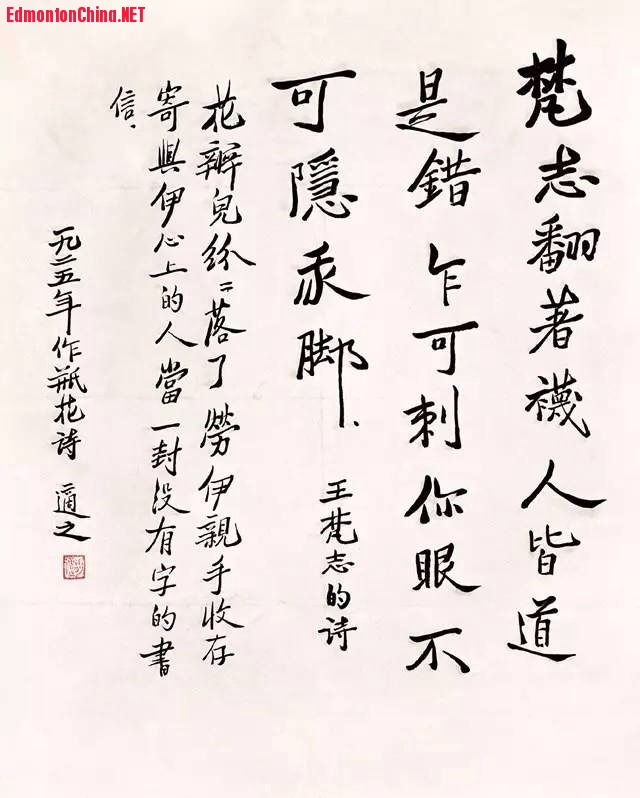 EdmontonChina.NET
梵志翻著襪人皆道
是錯乍可刺你眼不
可隱我脚、
王梵志的诗
花瓣兒紛〻落了勞伊親手收存
寄與伊心上的人當一封没有字的書
信、
一九二五年作瓶花诗 適之